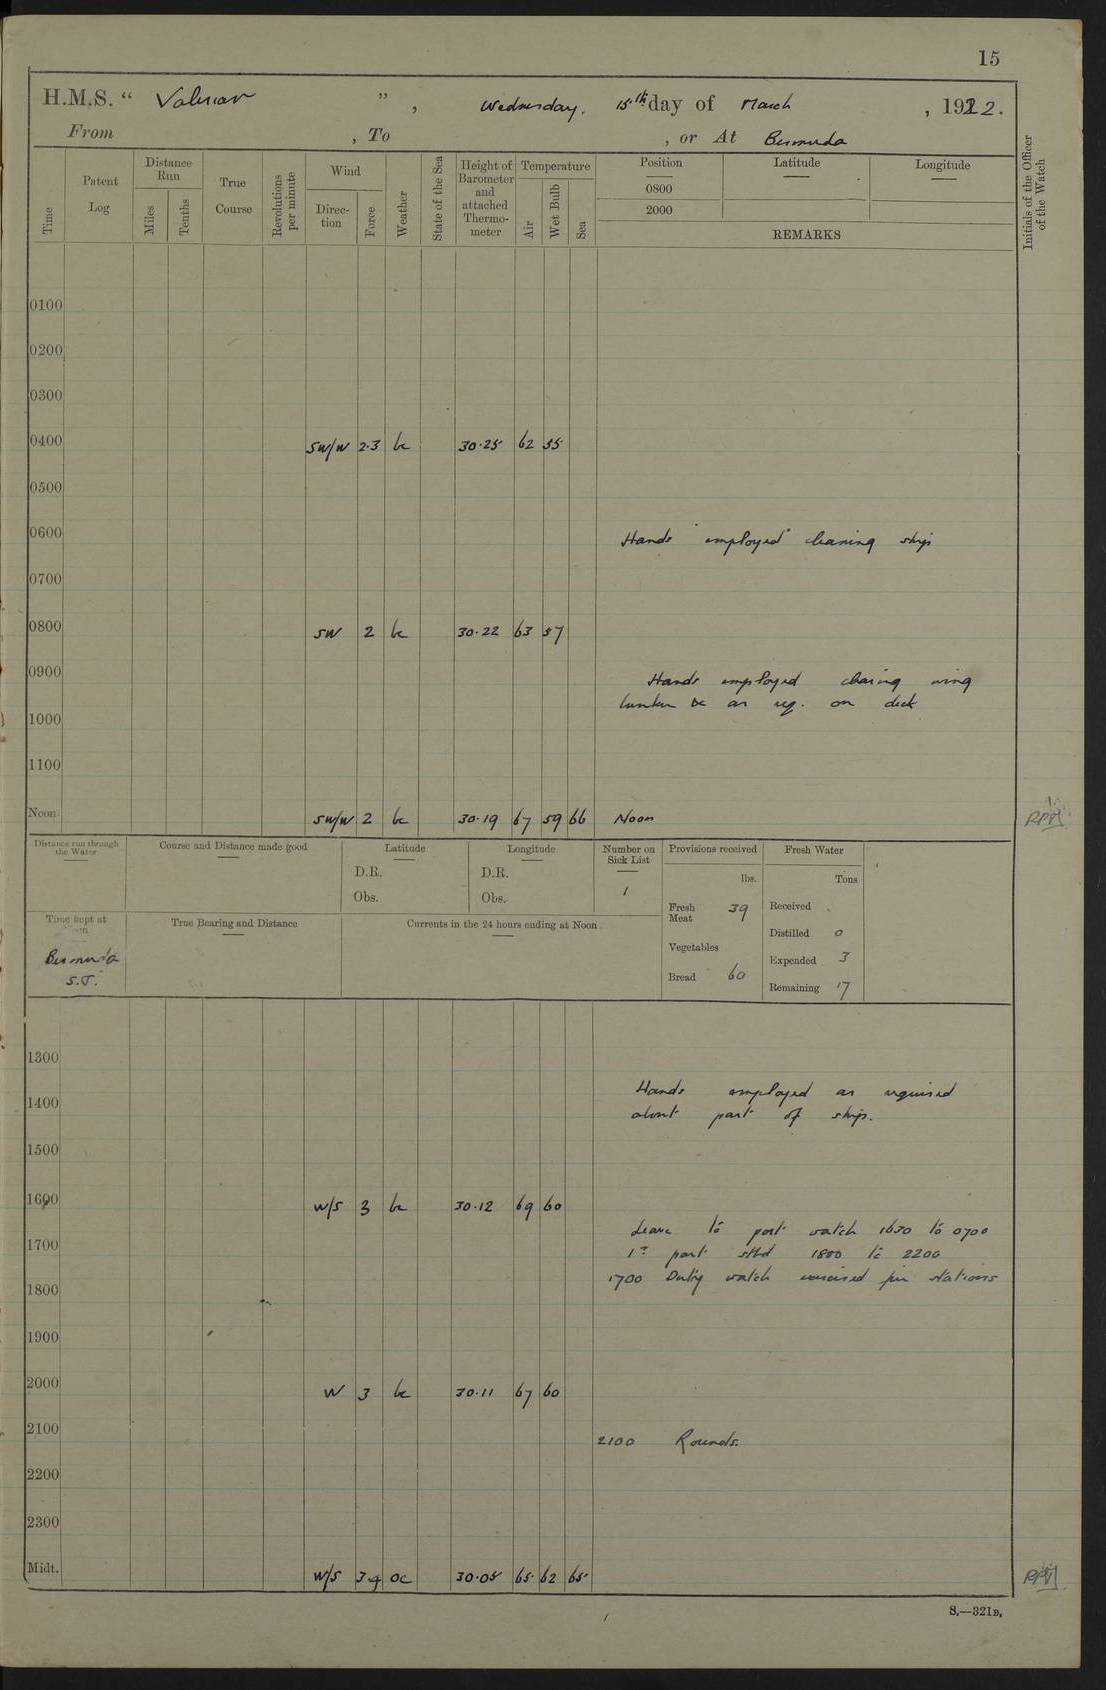 15
H.M.S. “ Valerian ” , Wednesday, 15th day of March , 1922.
From , To , or At Bermuda
Time Patent Log Distance Run Miles Tenths True Course Revolutions per minute Wind Direc-tion Force Weather State of the Sea Height of Barometer and attached Thermo-meter Temperature Air Wet Bulb Sea Position Latitude Longitude Initials of the Officer of the Watch
0800
2000
REMARKS
0100
0200
0300
0400 SW/W 2.3 bc 30.25 62 55
0500
0600 Hands employed cleaning ship
0700
0800 SW 2 bc 30.22 63 57
0900 Hands employed clearing wing
bunker &c as req. on deck
1000
1100
Noon SW/W 2 bc 30.19 67 59 66 Noon
Distance run through the Water Course and Distance made good Latitude Longitude Number on Sick List Provisions received Fresh Water
D.R. D.R. lbs. Tons
Obs. Obs. 1
Fresh Meat 39 Received
Time kept at Noon True Bearing and Distance Currents in the 24 hours ending at Noon
Distilled 0
Vegetables
Bermuda Expended 3
S.T. Bread 60
Remaining 17
1300
1400 Hands employed as required
about part of ship.
1500
1600 W/S 3 bc 30.12 69 60
Leave to port watch 1630 to 0700
1700 1st part stbd 1800 to 2200
1700 Duty watch exercised fire stations
1800
1900
2000 W 3 bc 30.11 67 60
2100 2100 Rounds.
2200
2300
Midt. W/S 3 4 oc 30.05 65 62 65
S.—321D.